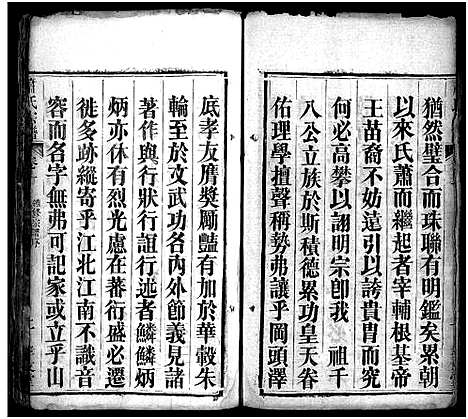 猶然璧合而珠聯有明鑑矣累朝
以來氏蕭而繼起者宰輔根基帝
王苗裔不妨遠引以誇貴胄而亦
何必高攀以詡明宗卽我　祖千
八公立族於斯積德累功皇天眷
佑理學擅聲稱勢弗讓乎岡頭澤
底孝友膺奬勵豔有加於華轂朱
輪至於文武功名內外節義見諸
著作與行狀行誼行述者鱗鱗炳
炳亦休有烈光慮在蕃衍盛必遷
徙多跡縱寄乎江北江南不識音
容而名字無弗可記家或立乎山
蕭氏